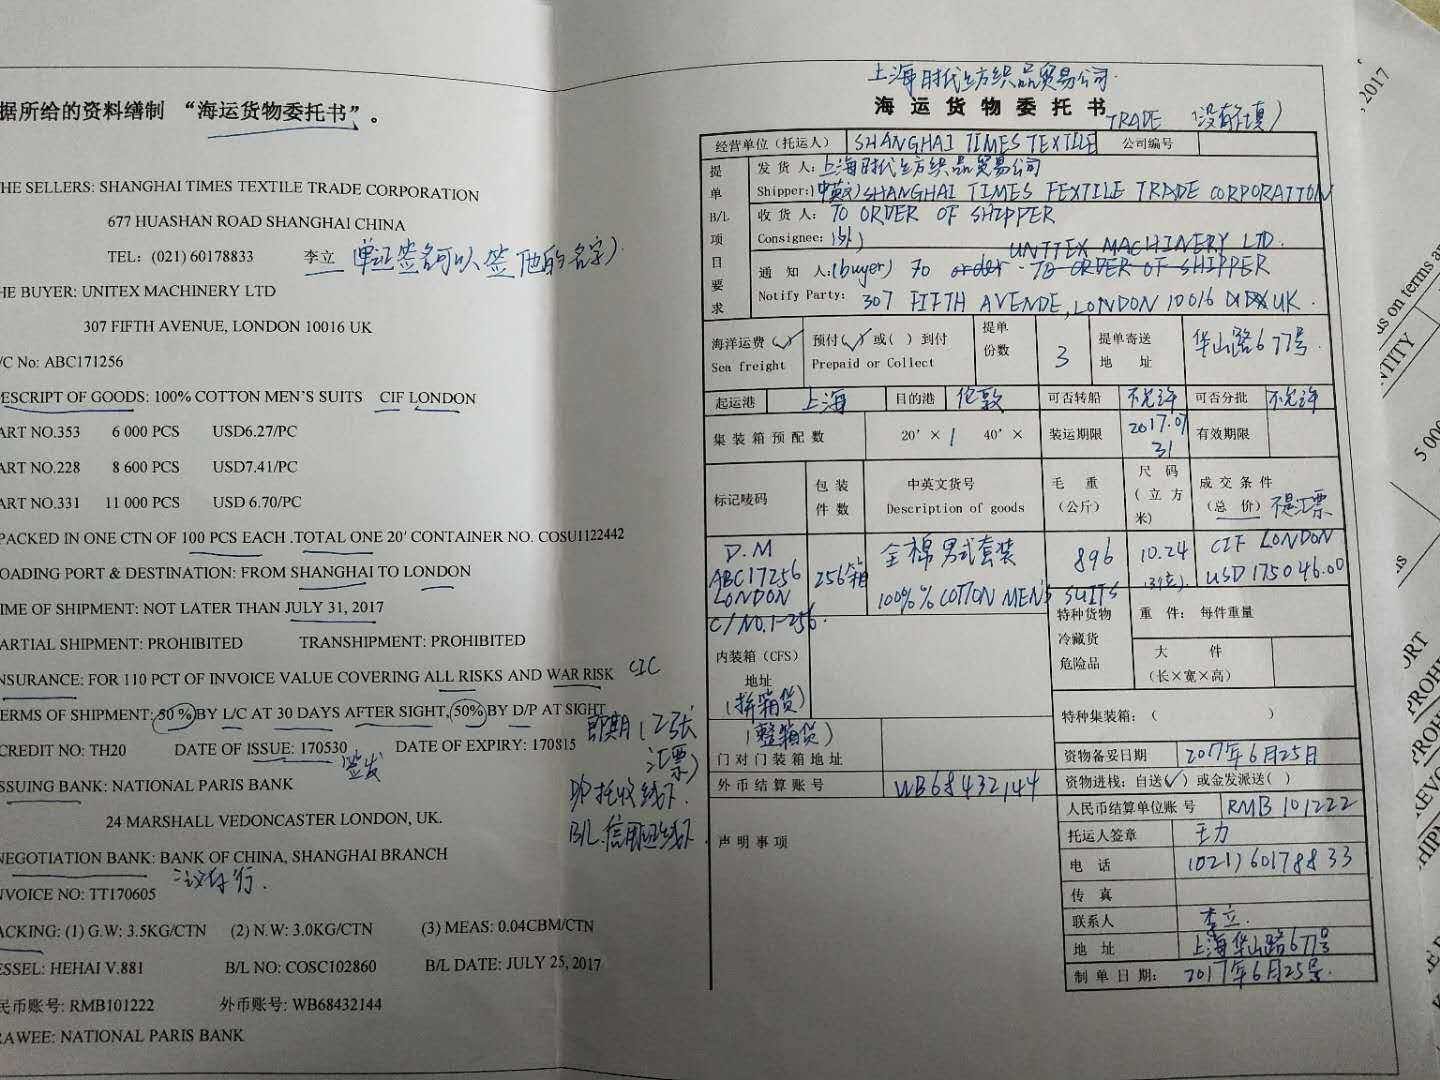 据所给的资料缮制 “海运货物委托书”。
HE SELLERS: SHANGHAI TIMES TEXTILE TRADE CORPORATION
677 HUASHAN ROAD SHANGHAI CHINA
TEL: (021) 60178833 李立 (单证签名可以签他的名字)
HE BUYER: UNITEX MACHINERY LTD
307 FIFTH AVENUE, LONDON 10016 UK
/C No: ABC171256
ESCRIPT OF GOODS: 100% COTTON MEN'S SUITS CIF LONDON
ART NO.353 6 000 PCS USD6.27/PC
ART NO.228 8 600 PCS USD7.41/PC
ART NO.331 11 000 PCS USD 6.70/PC
PACKED IN ONE CTN OF 100 PCS EACH .TOTAL ONE 20' CONTAINER NO. COSU1122442
OADING PORT & DESTINATION: FROM SHANGHAI TO LONDON
IME OF SHIPMENT: NOT LATER THAN JULY 31, 2017
ARTIAL SHIPMENT: PROHIBITED TRANSHIPMENT: PROHIBITED
NSURANCE: FOR 110 PCT OF INVOICE VALUE COVERING ALL RISKS AND WAR RISK CIC
ERMS OF SHIPMENT: 50 % BY L/C AT 30 DAYS AFTER SIGHT, 50% BY D/P AT SIGHT
即期 (2张汇票)
CREDIT NO: TH20 DATE OF ISSUE: 170530 DATE OF EXPIRY: 170815
签发
SSUING BANK: NATIONAL PARIS BANK
D/P托收线下.
24 MARSHALL VEDONCASTER LONDON, UK.
B/L.信用证线下.
NEGOTIATION BANK: BANK OF CHINA, SHANGHAI BRANCH
议付行.
NVOICE NO: TT170605
ACKING: (1) G.W: 3.5KG/CTN (2) N.W: 3.0KG/CTN (3) MEAS: 0.04CBM/CTN
ESSEL: HEHAI V.881 B/L NO: COSC102860 B/L DATE: JULY 25, 2017
民币账号: RMB101222 外币账号: WB68432144
RAWEE: NATIONAL PARIS BANK
上海时代纺织品贸易公司.
海运货物委托书
TRADE (没有填)
经营单位（托运人） SHANGHAI TIMES TEXTILE 公司编号
提单B/L项目要求
发 货 人: 上海时代纺织品贸易公司
Shipper: (中英文) SHANGHAI TIMES FEXTILE TRADE CORPORATION
收 货 人: TO ORDER OF SHIPPER
Consignee:
UNITEX MACHINERY LTD.
通 知 人: (buyer) TO order TO ORDER OF SHIPPER
Notify Party: 307 FIFTH AVENDE, LONDON 10016 UK.
海洋运费 (✓) 预付(✓) 或( ) 到付 提单份数 3 提单寄送地 址 华山路677号.
Sea freight Prepaid or Collect
起运港 上海 目的港 伦敦 可否转船 不允许 可否分批 不允许
集装箱预配数 20' × 1 40' × 装运期限 2017.07 31 有效期限
标记唛码 包装件数 中英文货号 Description of goods 毛 重（公斤） 尺 码（立方米） 成交条件（总 价）不是汇票
D.M
ABC17256
LONDON
C/NO.1-256.
256箱
全棉男式套装
100% % COTTON MEN'S SUITS
896
10.24
CIF LONDON
USD 175046.00
特种货物 冷藏货 危险品
重 件: 每件重量
大 件（长×宽×高）
内装箱 (CFS) 地址
(拼箱货)
特种集装箱: ( )
(整箱货)
门对门装箱地址
资物备妥日期 2017年6月25日
外币结算账号 WB68432144
资物进栈: 自送(✓) 或金发派送( )
人民币结算单位账号 RMB 101222
声明事项
托运人签章 王力
电 话 (021) 60178833
传 真
联系人 李立.
地 址 上海华山路677号
制单日期: 2017年6月25号.
, 2017
ds on terms a
NTITY
5 000
ORT
PROH
ROHI
REVO
SHIPM